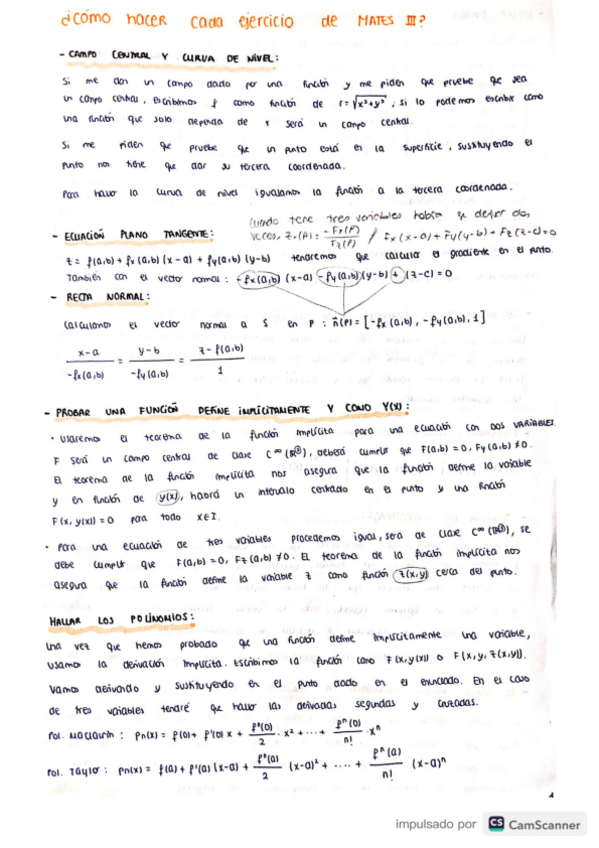 ¿cómo hacer cada ejercicio de MATES III?
- CAMPO CENTRAL Y CURVA DE NIVEL:
Si me dan un campo dado por una función y me piden que pruebe que sea
un campo central, escribimos f como función de r=√x²+y², si lo podemos escribir como
una función que solo dependa de r será un campo central.
Si me piden que pruebe que un punto está en la superficie, sustituyendo el
punto nos tiene que dar su tercera coordenada.
Para hallar la curva de nivel igualamos la función a la tercera coordenada.
cuando tiene tres variables habrá que definir dos
- ECUACIÓN PLANO TANGENTE: veces, Zx(A) = -Fx(P)/Fz(P) / Fx(x-a)+Fy(y-b)+Fz(z-c)=0
z = f(a,b) + fx(a,b)(x-a) + fy(a,b)(y-b) tendremos que calcular el gradiente en el punto.
También con el vector normal: -fx(a,b)(x-a) -fy(a,b)(y-b) + (z-c) = 0
- RECTA NORMAL:
Calculamos el vector normal a S en P: n(P) = [-fx(a,b), -fy(a,b), 1]
x-a/-fx(a,b) = y-b/-fy(a,b) = z-f(a,b)/1
- PROBAR UNA FUNCIÓN DEFINE IMPLÍCITAMENTE Y COMO Y(X):
· Usaremos el teorema de la función implícita para una ecuación con dos VARIABLES.
F será un campo central de clase C∞(R²), deberá cumplir que F(a,b)=0, Fy(a,b)≠0.
El teorema de la función implícita nos asegura que la función define la variable
y en función de y(x), habrá un intervalo centrado en el punto y una función
F(x,y(x))=0 para todo x∈I.
· Para una ecuación de tres variables procedemos igual, será de clase C∞(R³), se
debe cumplir que F(a,b)=0, Fz(a,b)≠0. El teorema de la función implícita nos
asegura que la función define la variable z como función z(x,y) cerca del punto.
HALLAR LOS POLINOMIOS:
Una vez que hemos probado que una función define implícitamente una variable,
usamos la derivación implícita. Escribimos la función como F(x,y(x)) o F(x,y,z(x,y)).
Vamos derivando y sustituyendo en el punto dado en el enunciado. En el caso
de tres variables tendré que hallar las derivadas segundas y cruzadas.
Pol. Maclaurin: Pn(x) = f(0) + f'(0)x + f''(0)/2 · x² + ··· + fⁿ(0)/n! · xⁿ
Pol. Taylor: Pn(x) = f(a) + f'(a)(x-a) + f''(a)/2 (x-a)² + .... + fⁿ(a)/n! (x-a)ⁿ
1
impulsado por CS CamScanner